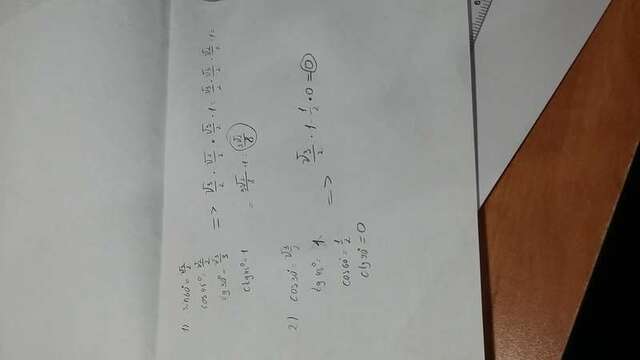 1) sin60°=√3/2
cos45°=√2/2
tg30°=√3/3
ctg45°=1
=> √3/2 · √2/2 · √3/2 · 1 = √3/2 · √2/2 · √3/2 · 1 =
= 3√2/8 · 1 = 3√2/8
2) cos30°=√3/2
tg45°=1
cos60°=1/2
ctg90°=0
=> √3/2 · 1 · 1/2 · 0 = 0